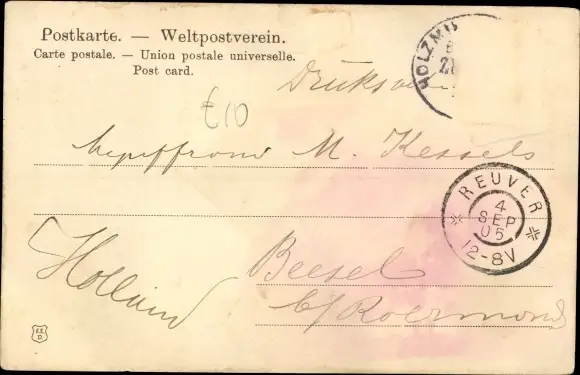 Postkarte. — Weltpostverein.
Carte postale. — Union postale universelle.
Post card.
HOLZMI
€10
M. Kessels
REUVER
4
SEP
05
12-8V
Holland
Beesel
b/ Roermond